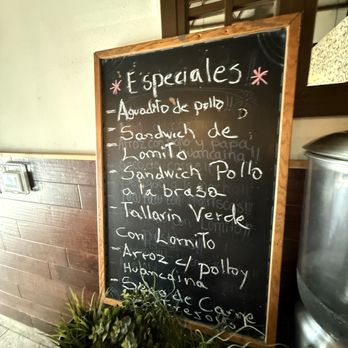 * Especiales *
- Aguadito de pollo
- Sandwich de
Lomito
- Sandwich Pollo
a la brasa
- Tallarin Verde
con Lomito
- Arroz c/ pollo y
Huancaina
- Seco de Carne